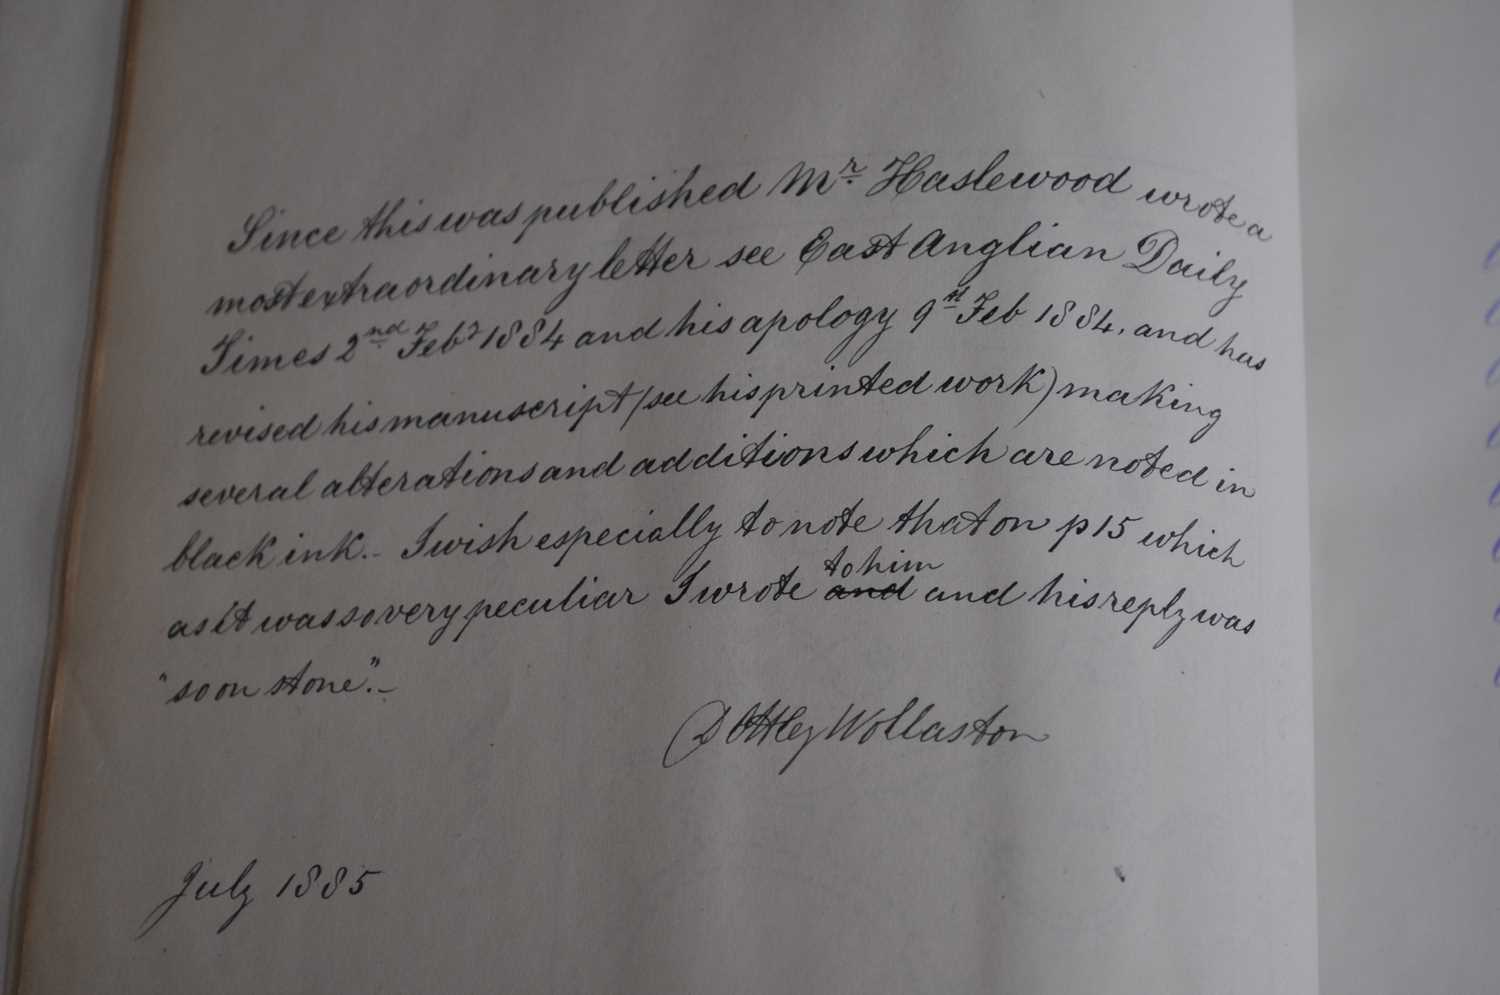 Since this was published Mr. Haslewood wrote a
most extraordinary letter see East Anglian Daily
Times 2nd Feby 1884 and his apology 9th Feb 1884. and has
revised his manuscript (see his printed work) making
several alterations and additions which are noted in
black ink. - I wish especially to note that on p 15 which
as it was so very peculiar I wrote and to him and his reply was
"soon stone". -
D Ottley Wollaston
July 1885